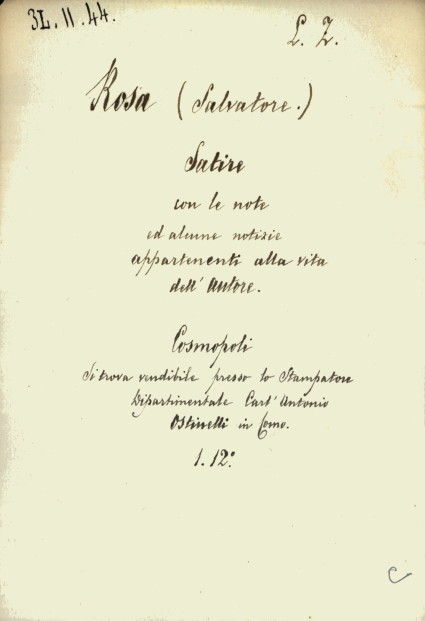 3L.11.44.
L. Z.
Rosa (Salvatore.)
Satire
con le note
ed alcune notizie
appartenenti alla vita
dell' Autore.
Cosmopoli
Si trova vendibile presso lo Stampatore
Dipartimentale Carl' Antonio
Ostinelli in Como.
1. 12°
C